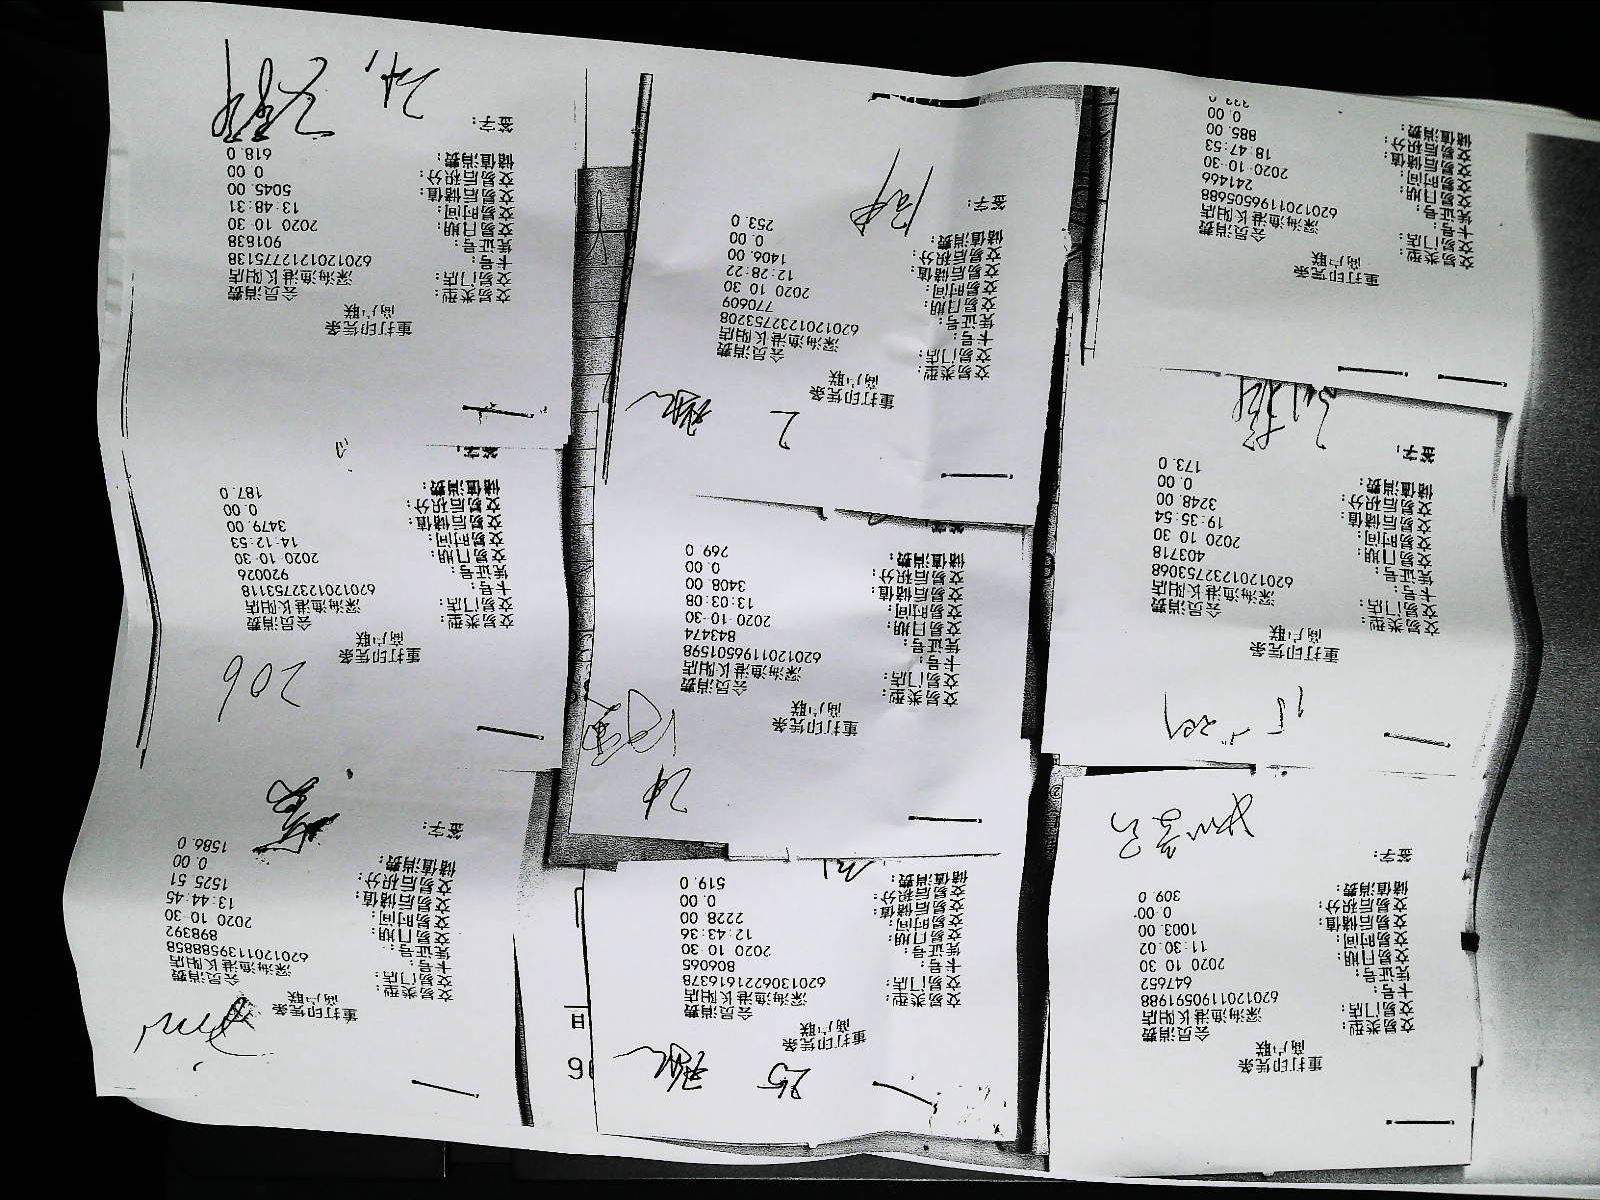 重打印凭条
商户联
交易类型: 会员消费
交易门店: 深海渔港长阳店
卡号: 6201201190591988
凭证号: 647652
交易日期: 2020-10-30
交易时间: 11:30:02
交易后储值: 1003.00
交易后积分: 0.00
储值消费: 309.0
签字:
25
重打印凭条
商户联
交易类型: 会员消费
交易门店: 深海渔港长阳店
卡号: 6201306221616378
凭证号: 806065
交易日期: 2020-10-30
交易时间: 12:43:36
交易后储值: 2228.00
交易后积分: 0.00
储值消费: 519.0
重打印凭条
商户联
交易类型: 会员消费
交易门店: 深海渔港长阳店
卡号: 6201201139588858
凭证号: 898392
交易日期: 2020-10-30
交易时间: 13:44:45
交易后储值: 1525.51
交易后积分: 0.00
储值消费: 1586.0
签字:
重打印凭条
商户联
交易类型: 会员消费
交易门店: 深海渔港长阳店
卡号: 6201201232753068
凭证号: 403718
交易日期: 2020-10-30
交易时间: 19:35:54
交易后储值: 3248.00
交易后积分: 0.00
储值消费: 173.0
签字:
重打印凭条
商户联
交易类型: 会员消费
交易门店: 深海渔港长阳店
卡号: 6201201196501598
凭证号: 843474
交易日期: 2020-10-30
交易时间: 13:03:08
交易后储值: 3408.00
交易后积分: 0.00
储值消费: 769.0
签字
206
重打印凭条
商户联
交易类型: 会员消费
交易门店: 深海渔港长阳店
卡号: 6201201232753118
凭证号: 920026
交易日期: 2020-10-30
交易时间: 14:12:53
交易后储值: 3479.00
交易后积分: 0.00
储值消费: 187.0
签字:
重打印凭条
商户联
交易类型: 会员消费
交易门店: 深海渔港长阳店
卡号: 6201201196505688
凭证号: 241466
交易日期: 2020-10-30
交易时间: 18:47:53
交易后储值: 885.00
交易后积分: 0.00
储值消费:
2
重打印凭条
商户联
交易类型: 会员消费
交易门店: 深海渔港长阳店
卡号: 6201201232753208
凭证号: 770609
交易日期: 2020-10-30
交易时间: 12:28:22
交易后储值: 1406.00
交易后积分: 0.00
储值消费: 253.0
签字:
重打印凭条
商户联
交易类型: 会员消费
交易门店: 深海渔港长阳店
卡号: 6201201212775138
凭证号: 901838
交易日期: 2020-10-30
交易时间: 13:48:31
交易后储值: 5045.00
交易后积分: 0.00
储值消费: 618.0
签字: